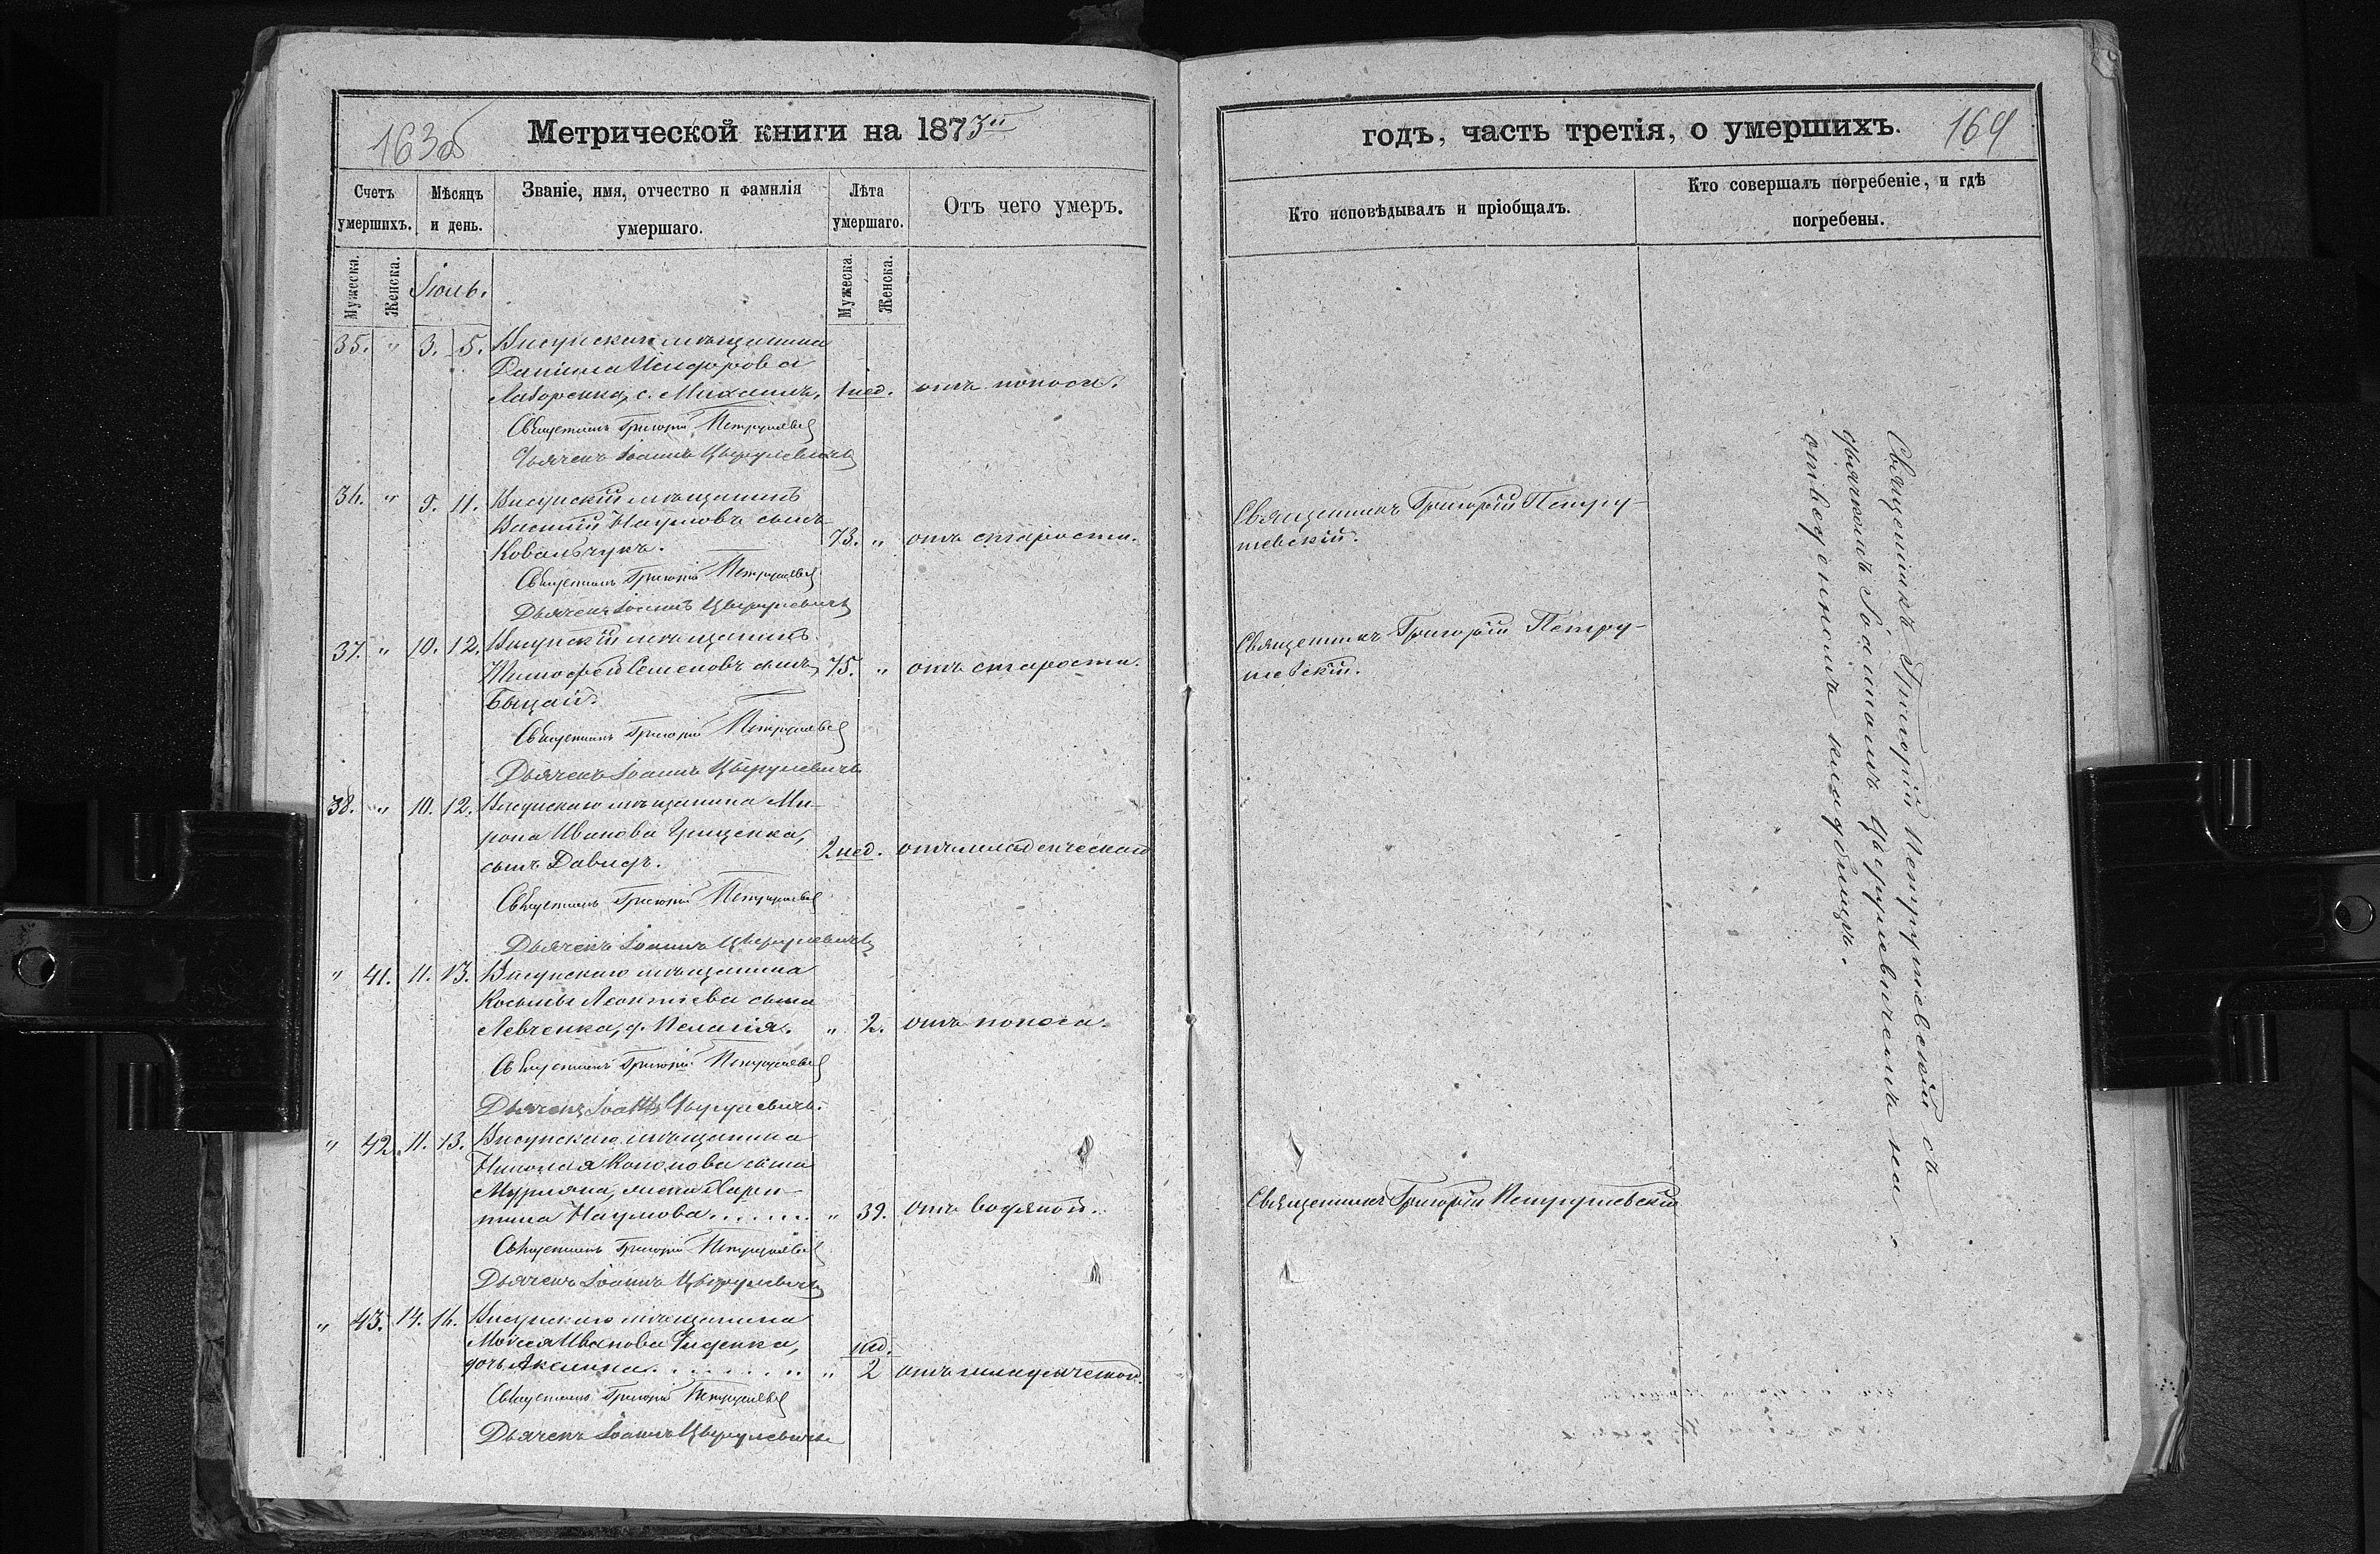 163об
Метрической книги на 1873й
Счетъ умершихъ.
Мѣсяцъ и день.
Званіе, имя, отчество и фамилія умершаго.
Лѣта умершаго.
Отъ чего умеръ.
Мужеска.
Женска.
Іюль.
Мужеска.
Женска.
35. " 3. 5. Висунскаго мѣщанина
Даніила Исидорова
с. Михаилъ, 1 нед. отъ поноса.
Священникъ Григорій Петрушевскій
Дьячекъ Іоаннъ Цыгулевичъ
36. " 9. 11. Висунскій мѣщанинъ
Василій Наумовъ сынъ
Ковальчукъ. 73. " отъ старости.
Священникъ Григорій Петрушевскій
Дьячекъ Іоаннъ
37. " 10. 12. Висунскій мѣщанинъ
Тимофей Семеновъ сынъ 75. " отъ старости.
Быцай.
Священникъ Григорій Петрушевскій
Дьячекъ Іоаннъ
38. " 10. 12. Висунскаго мѣщанина Ми-
рона Иванова Грищенка,
сынъ Давидъ. 2 нед. отъ младенческой
Священникъ Григорій Петрушевскій
Дьячекъ Іоаннъ
" 41. 11. 13. Висунскаго мѣщанина
Косьмы Леонтіева сына
Левченка, д. Пелагія. " 2. отъ поноса.
Священникъ Григорій Петрушевскій
Дьячекъ Іоаннъ
" 42. 11. 13. Висунскаго мѣщанина
Николая Кононова сына
жена Хари-
тина Наумова....... " 39. отъ водяной.
Священникъ Григорій Петрушевскій
Дьячекъ Іоаннъ
" 43. 14. 16. Висунскаго мѣщанина
Моисея Иванова нед.
дочь Акилина........ " 2 отъ младенческой.
Священникъ Григорій Петрушевскій
Дьячекъ Іоаннъ
годъ, часть третія, о умершихъ.
164
Кто исповѣдывалъ и пріобщалъ.
Кто совершалъ погребеніе, и гдѣ
погребены.
Священникъ Григорій Петру-
шевскій.
Священникъ Григорій Петру-
шевскій.
Священникъ Григорій Петрушевскій
Священникъ Григорій Петрушевскій съ
дьячкомъ Іоанномъ на
отведенномъ кладбищѣ.